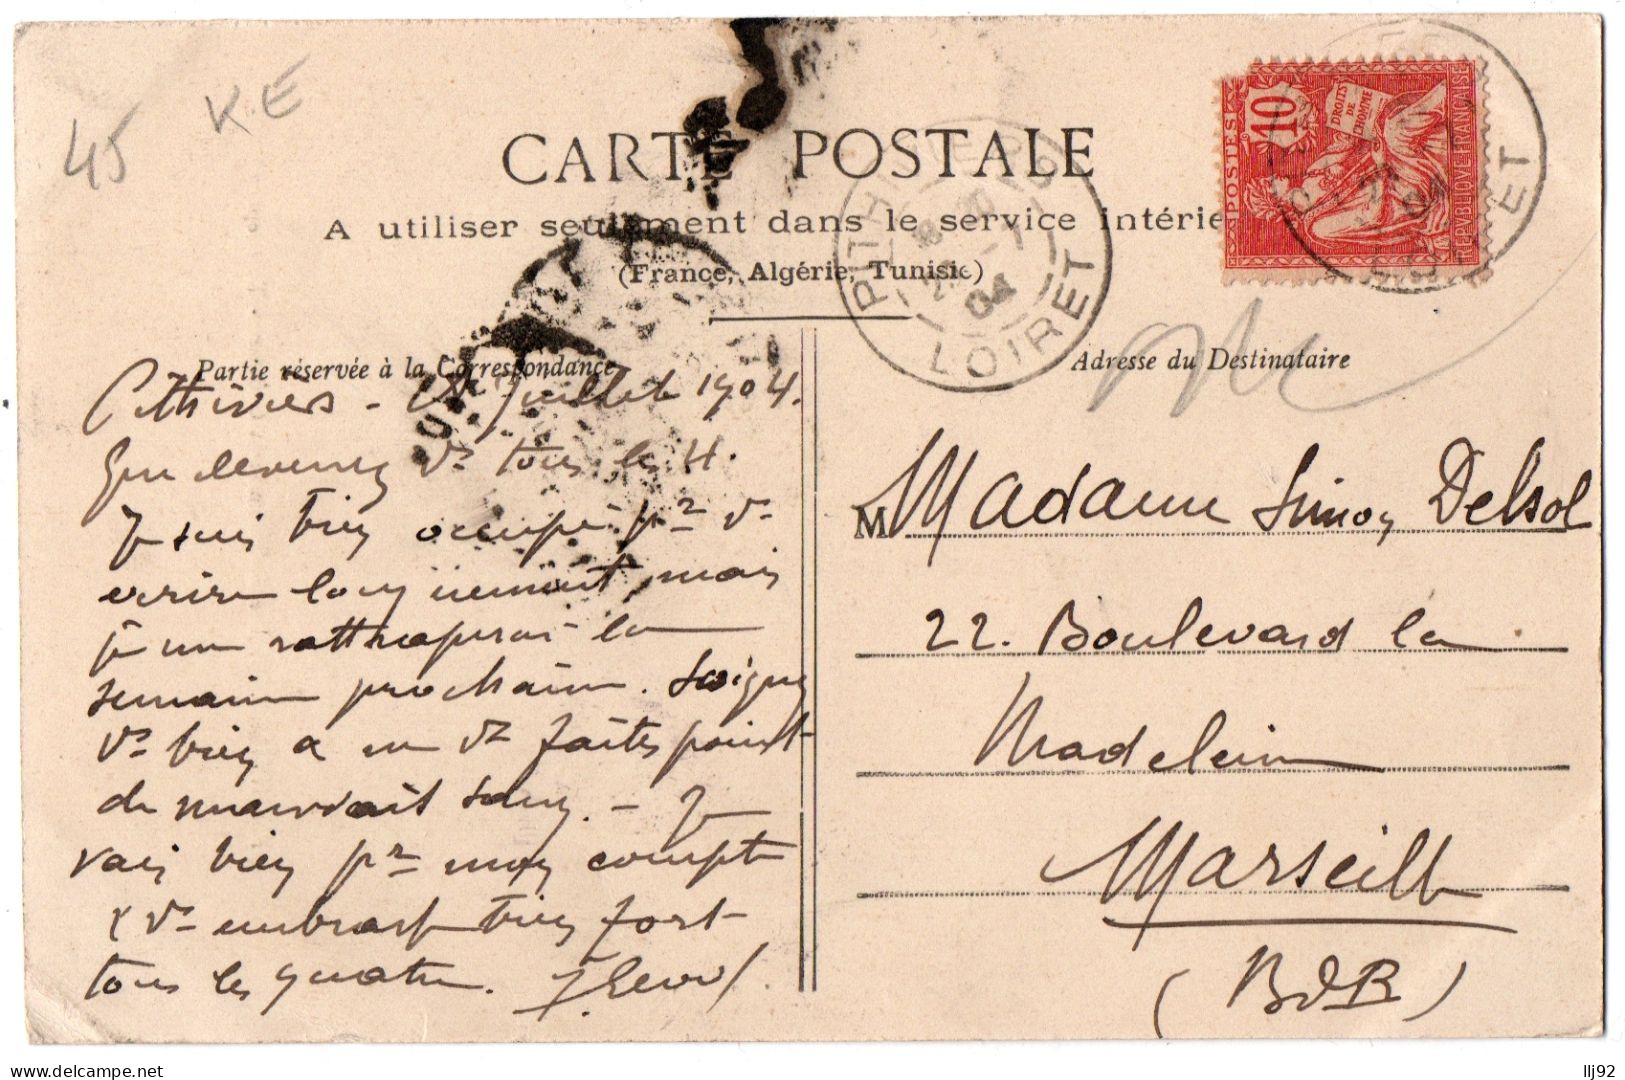 45
K.E
CARTE POSTALE
A utiliser seulement dans le service intérie
(France, Algérie, Tunisie)
POSTES
10
DROITS DE L'HOMME
REPVBLIQVE FRANÇAISE
PITHIVIERS
04
LOIRET
ET
Partie réservée à la Correspondance
Adresse du Destinataire
Pithiviers - Juillet 1904.
Que devenez vs tous les 4.
Je suis bien occupé pr vs
ecrire longuement, mais
je me rattraperai la
semaine prochaine. Soignez
vs bien & ne vs faites point
de mauvais sang. - Je
vais bien pr mon compte
& vs embrasse bien fort
tous les quatre.
M Madame Simon Delsol
22. Boulevard la
Madeleine
Marseille
(BdR)
llj92